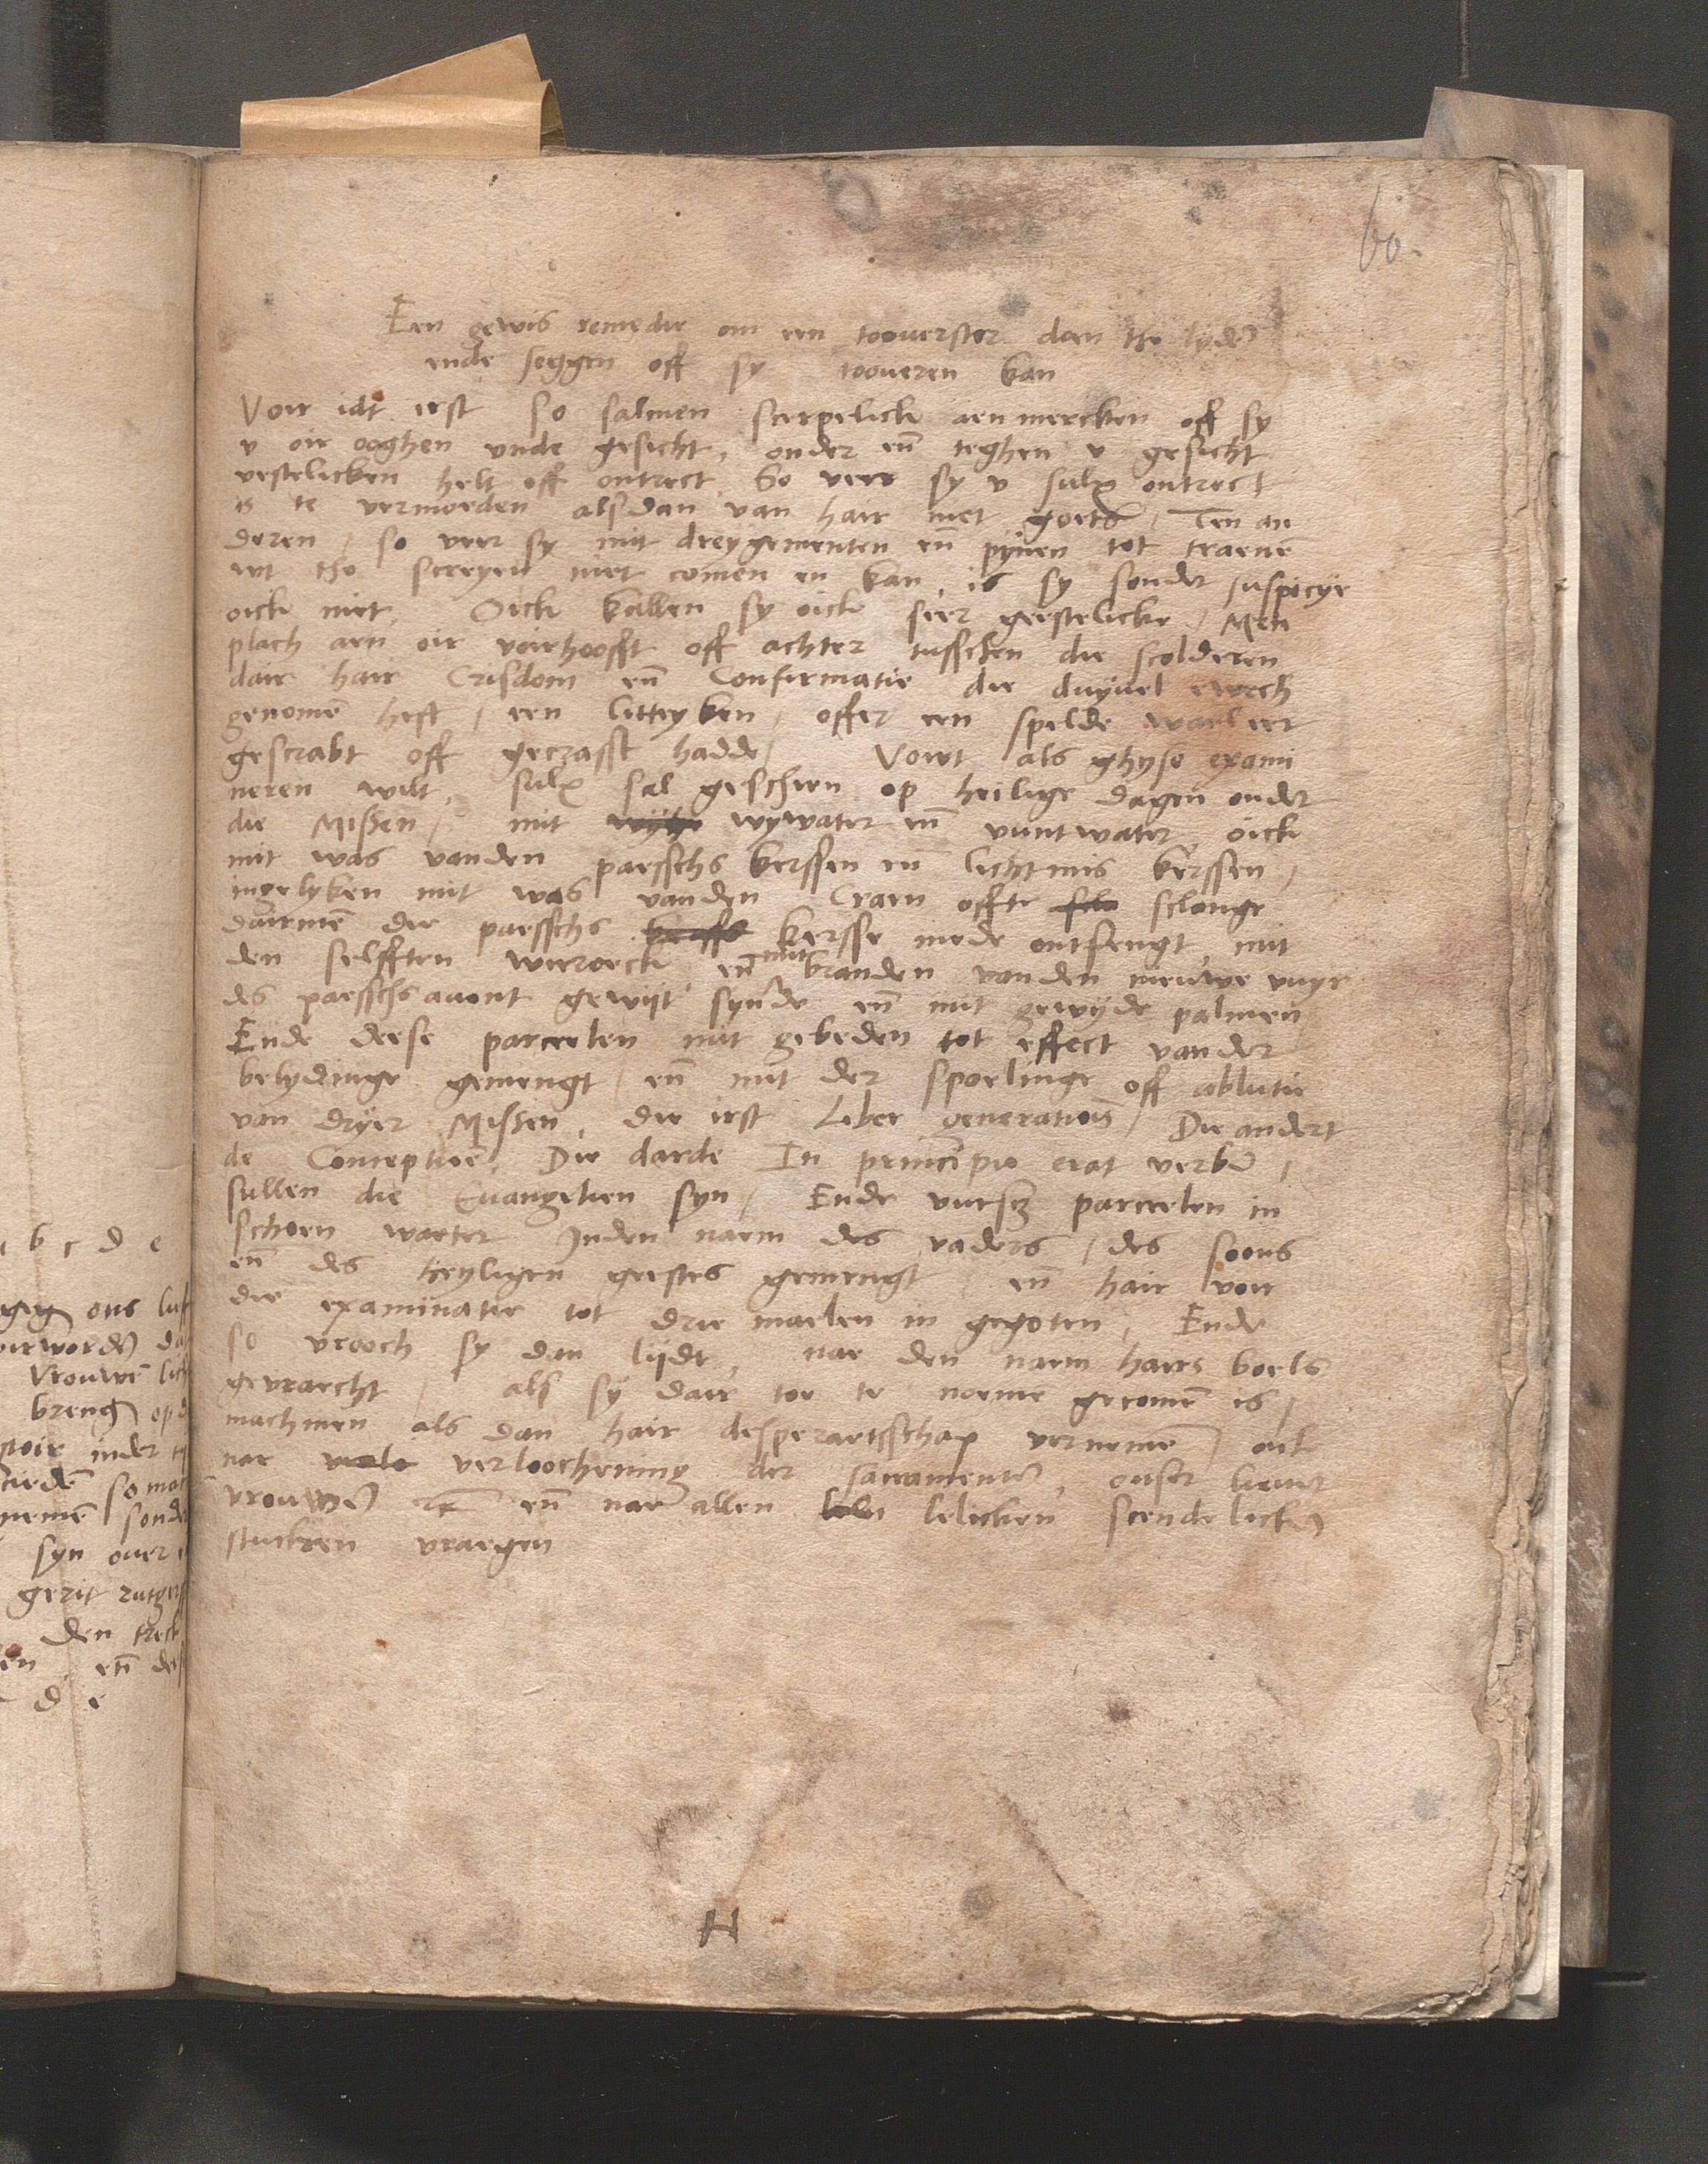 60.
Een gewis remedie om een tooverster doen tho lyden̄
ende seggen off sy tooveren kan
Voir idt irst so salmen scerpelick aenmercken off sy
v oir ooghen vnde gesicht, onder en̄ teghen v gesicht
vestelicken helt off ontrect, so veer sy v sulx ontrect
is te vermoeden alsdan van hair niet goets, Ten an
deren, so veer sy mit dreygementen en̄ pijnen tot traene
wt tho screyen niet comen en kan, is sy sonder suspicye
oick niet, Oick kallen sy oick seer geestelicke, Men
plach aen oir voirhoofft off achter tusschen die scolderen
dair hair Crisdom en̄ Confirmatie die duyuel ewech
genomē heft, een litteyken, offer een spelde wael eer
gescrabt off gecrasst hadde, Voirt als ghyse exami
neren wilt, sulx sal geschien op heilige dagen onder
die Missen, mit wywater en̄ vuntwater, oick
mit was vanden paesschs kerssen en̄ lichtmis kerssen,
ingelyken mit was vanden Craen offte slonge
dairmē die paesschs kersse mede ontfengt, mit
den selfften wieroeck en̄ mit branden van den nieuwe vuyr
des paesschsauont gewijt synde en̄ mit gewijde palmen
Ende deese parceelen mit gebeden tot effect vander
belydinge gemengt, en̄ mit der spoelinge off ablutie
van dryer Missen, die irst Liber generationis, Die andert
de Conceptiōē, Die darde In principio erat verbū,
sullen die Euangelien syn, Ende vursz parceelen in
schoen waeter Inden naem des vaders, des soons
en̄ des heyligen geestes gemengt en̄ hair voir
die examinatie tot drie maelen in gegoten, Ende
so vrooch sy dan lijdt, nae den naem hairs boels
gevraecht, als sy dair toe te noeme gecomē is,
machmen als dan hair desperaetsschap vernemē, oick
nae verloochening der sacramentē, onser liever
vrouwē etc en̄ nae allen lelicken scendelicken
stucken vraegen
H
b c d e
ons
vrouwē
breng
sonder
syn over
gerit rutger
den
en̄
d e